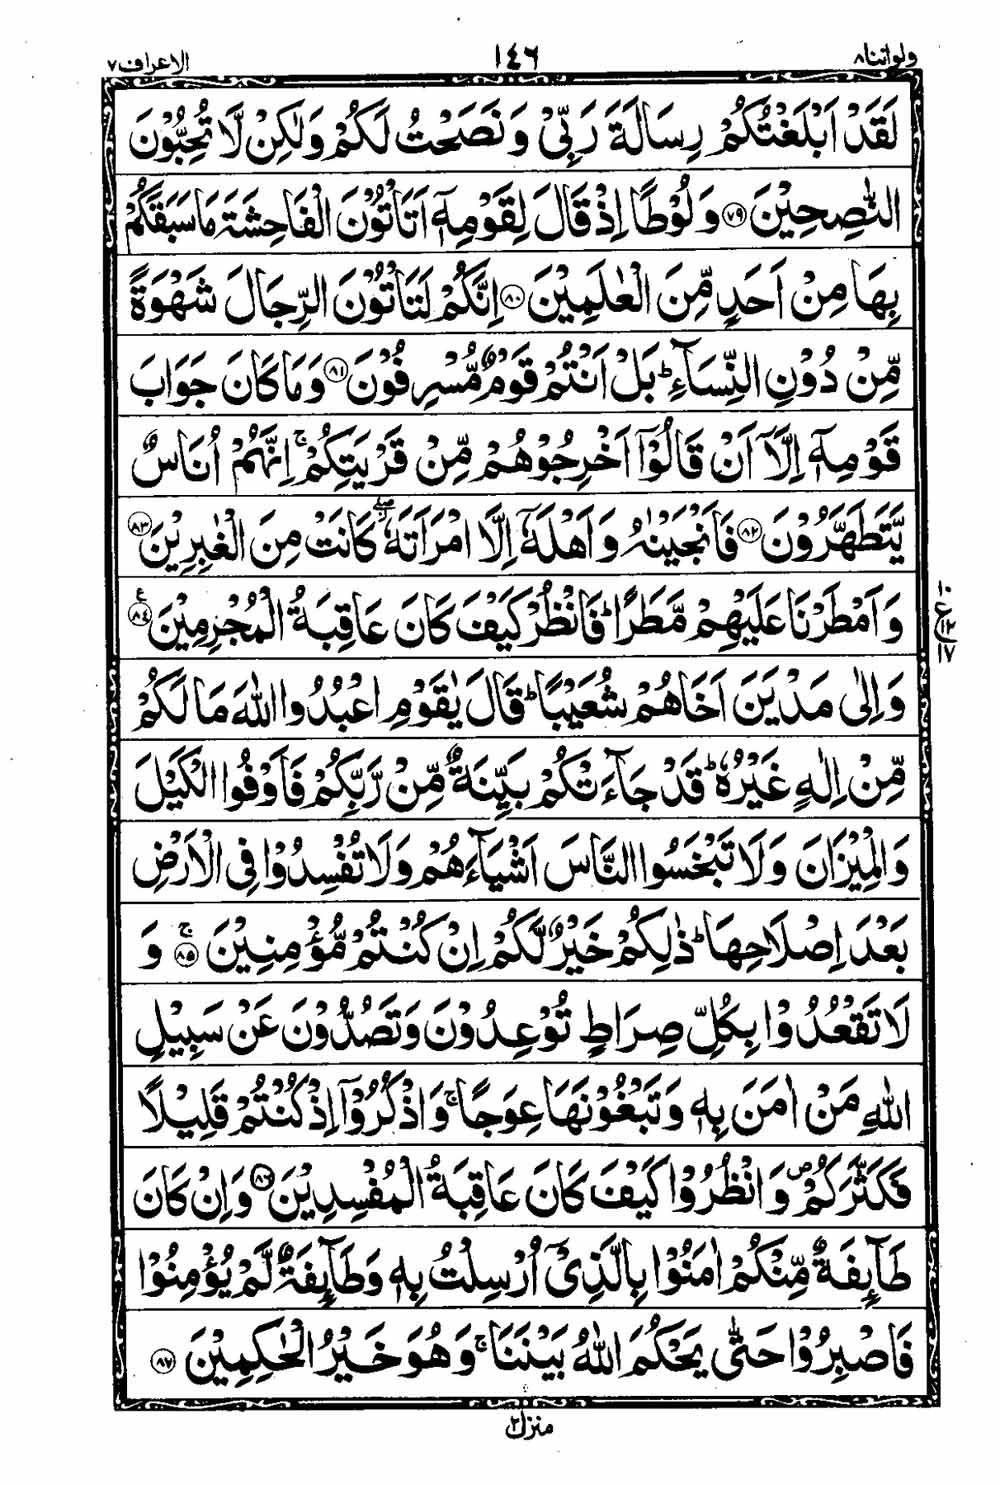 ولواننا ٨ ١٤٦ الاعراف ٧
لَقَدْ اَبْلَغْتُكُمْ رِسَالَةَ رَبِّيْ وَنَصَحْتُ لَكُمْ وَلٰكِنْ لَّا تُحِبُّوْنَ
النّٰصِحِيْنَ ﴿٧٩﴾ وَلُوْطًا اِذْ قَالَ لِقَوْمِهٖۤ اَتَاْتُوْنَ الْفَاحِشَةَ مَا سَبَقَكُمْ
بِهَا مِنْ اَحَدٍ مِّنَ الْعٰلَمِيْنَ ﴿٨٠﴾ اِنَّكُمْ لَتَاْتُوْنَ الرِّجَالَ شَهْوَةً
مِّنْ دُوْنِ النِّسَآءِ ؕ بَلْ اَنْتُمْ قَوْمٌ مُّسْرِفُوْنَ ﴿٨١﴾ وَمَا كَانَ جَوَابَ
قَوْمِهٖۤ اِلَّاۤ اَنْ قَالُوْۤا اَخْرِجُوْهُمْ مِّنْ قَرْيَتِكُمْ ۚ اِنَّهُمْ اُنَاسٌ
يَّتَطَهَّرُوْنَ ﴿٨٢﴾ فَاَنْجَيْنٰهُ وَاَهْلَهٗۤ اِلَّا امْرَاَتَهٗ ۖ كَانَتْ مِنَ الْغٰبِرِيْنَ ﴿٨٣﴾
وَاَمْطَرْنَا عَلَيْهِمْ مَّطَرًا ؕ فَانْظُرْ كَيْفَ كَانَ عَاقِبَةُ الْمُجْرِمِيْنَ ﴿٨٤﴾ ع
١٠ ع ١٢ ١٧
وَاِلٰى مَدْيَنَ اَخَاهُمْ شُعَيْبًا ؕ قَالَ يٰقَوْمِ اعْبُدُوا اللّٰهَ مَا لَكُمْ
مِّنْ اِلٰهٍ غَيْرُهٗ ؕ قَدْ جَآءَتْكُمْ بَيِّنَةٌ مِّنْ رَّبِّكُمْ فَاَوْفُوا الْكَيْلَ
وَالْمِيْزَانَ وَلَا تَبْخَسُوا النَّاسَ اَشْيَآءَهُمْ وَلَا تُفْسِدُوْا فِي الْاَرْضِ
بَعْدَ اِصْلَاحِهَا ؕ ذٰلِكُمْ خَيْرٌ لَّكُمْ اِنْ كُنْتُمْ مُّؤْمِنِيْنَ ﴿٨٥﴾ ۚ وَ
لَا تَقْعُدُوْا بِكُلِّ صِرَاطٍ تُوْعِدُوْنَ وَتَصُدُّوْنَ عَنْ سَبِيْلِ
اللّٰهِ مَنْ اٰمَنَ بِهٖ وَتَبْغُوْنَهَا عِوَجًا ۚ وَاذْكُرُوْۤا اِذْ كُنْتُمْ قَلِيْلًا
فَكَثَّرَكُمْ ۪ وَانْظُرُوْا كَيْفَ كَانَ عَاقِبَةُ الْمُفْسِدِيْنَ ﴿٨٦﴾ وَاِنْ كَانَ
طَآئِفَةٌ مِّنْكُمْ اٰمَنُوْا بِالَّذِيْۤ اُرْسِلْتُ بِهٖ وَطَآئِفَةٌ لَّمْ يُؤْمِنُوْا
فَاصْبِرُوْا حَتّٰى يَحْكُمَ اللّٰهُ بَيْنَنَا ۚ وَهُوَ خَيْرُ الْحٰكِمِيْنَ ﴿٨٧﴾
منزل ٢